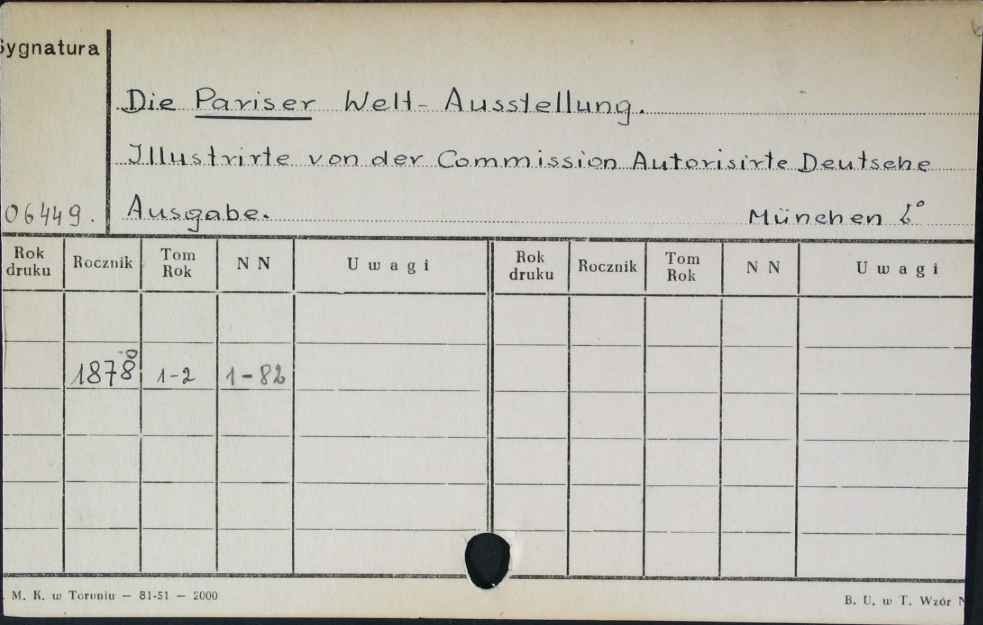 Sygnatura
Die Pariser Welt-Ausstellung.
Illustrirte von der Commission Autorisirte Deutsche
06449. Ausgabe. München
Rok druku Rocznik Tom Rok NN Uwagi Rok druku Rocznik Tom Rok NN Uwagi
1878 1-2 1-82
M. K. w Toruniu — 81-51 — 2000 B. U. w T. Wzór N